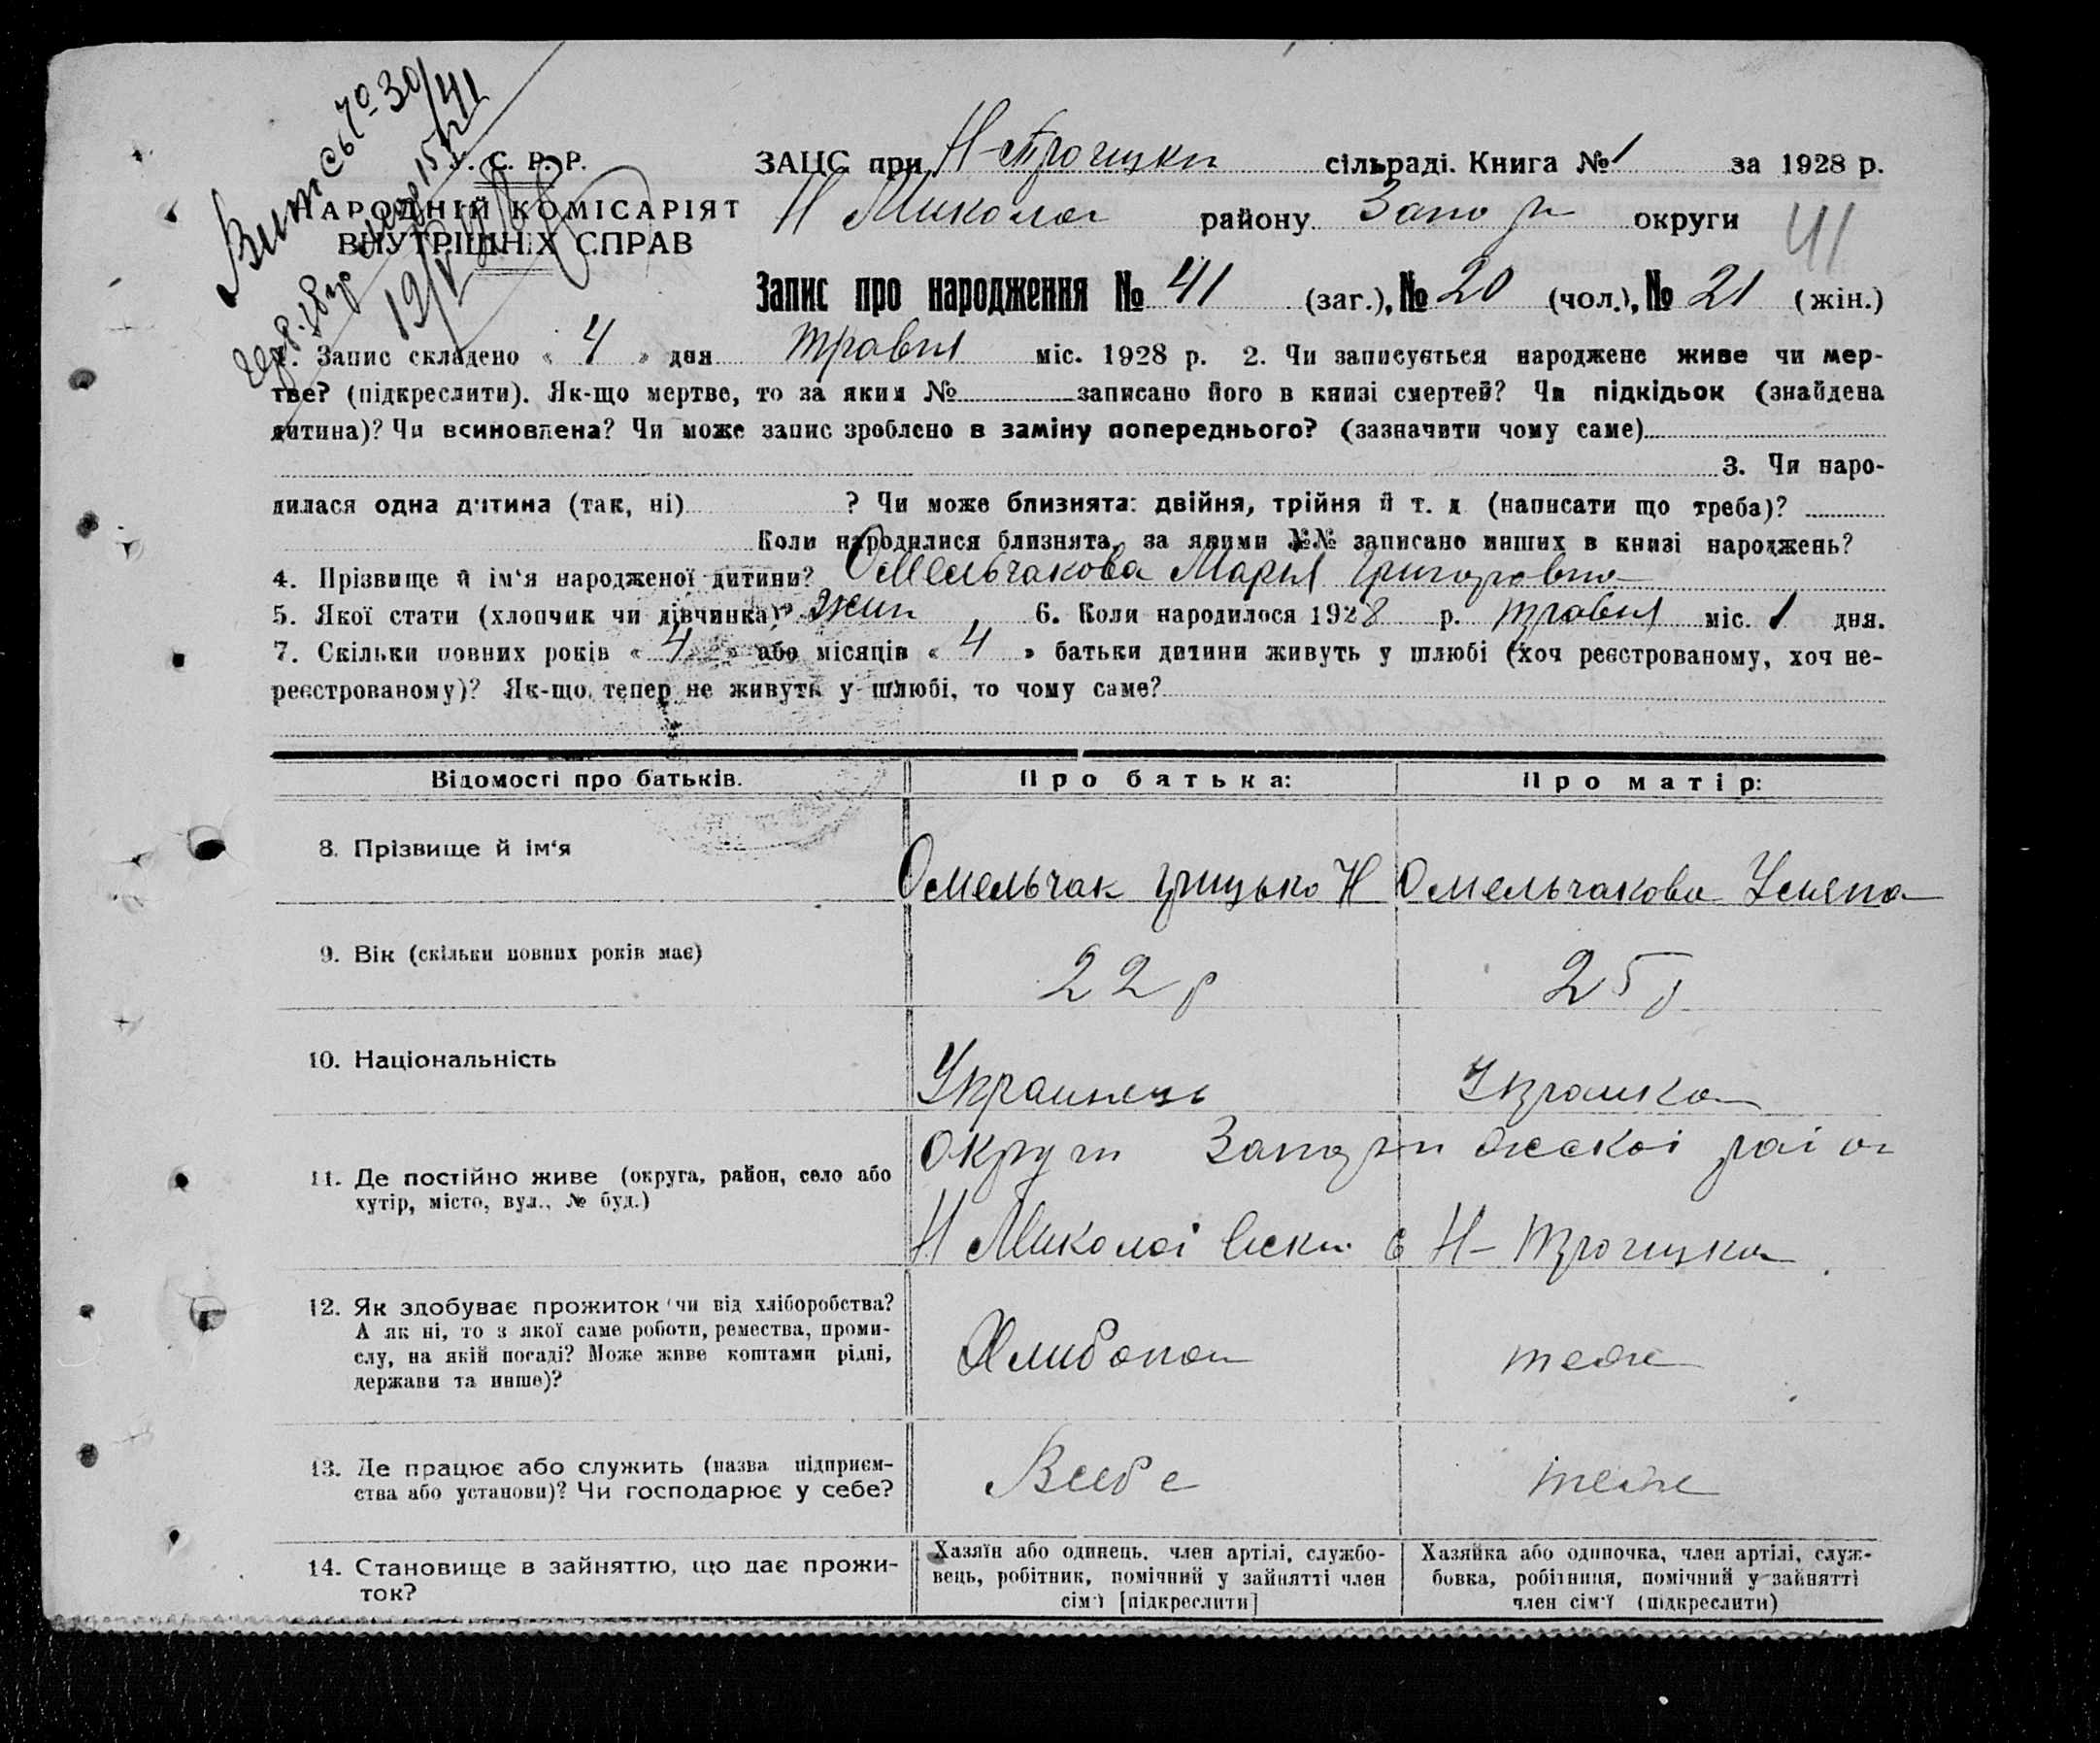 У. С. Р. Р.
НАРОДНІЙ КОМІСАРІЯТ
ВНУТРІШНІХ СПРАВ
ЗАЦС при Н-Троицки сільраді. Книга № 1 за 1928 р.
Н Микола району Запо округи
41
Запис про народження № 41 (заг.), № 20 (чол.), № 21 (жін.)
1. Запис складено « 4 » дня травня міс. 1928 р. 2. Чи записується народжене живе чи мер-
тве? (підкреслити). Як-що мертве, то за яким № записано його в книзі смертей? Чи підкідьок (знайдена
дитина)? Чи всиновлена? Чи може запис зроблено в заміну попереднього? (зазначити чому саме)
3. Чи наро-
дилася одна дитина (так, ні) ? Чи може близнята: двійня, трійня й т. д (написати що треба)?
Коли народилися близнята, за якими №№ записано инших в книзі народжень?
4. Прізвище й ім‘я народженої дитини? Омельчакова Мария Григоровна
5. Якої стати (хлопчик чи дівчинка)? жин 6. Коли народилося 1928 р. травня міс. 1 дня.
7. Скільки повних років « 4 » або місяців « 4 » батьки дитини живуть у шлюбі (хоч реєстрованому, хоч не-
реєстрованому)? Як-що тепер не живуть у шлюбі, то чому саме?
Відомості про батьків. Про батька: Про матір:
8. Прізвище й ім‘я Омельчак Грицько Н Омельчакова Устяна
9. Вік (скільки повних років має) 22 р 25 р
10. Національність Украинець Украинка
11. Де постійно живе (округа, район, село або
хутір, місто, вул., № буд.)
округи Запорижскоі раіон
Н Миколоівски с Н-Троицки
12. Як здобуває прожиток чи від хліборобства?
А як ні, то з якої саме роботи, ремества, проми-
слу, на якій посаді? Може живе коштами рідні,
держави та инше)?
Хлибопа теж
13. Де працює або служить (назва підприєм-
ства або установи)? Чи господарює у себе?
Всебе теж
14. Становище в зайняттю, що дає прожи-
ток?
Хазяїн або одинець, член артілі, службо-
вець, робітник, помічний у зайнятті член
сім‘ї [підкреслити]
Хазяйка або одиночка, член артілі, служ-
бовка, робітниця, помічний у зайнятті
член сім‘ї (підкреслити)